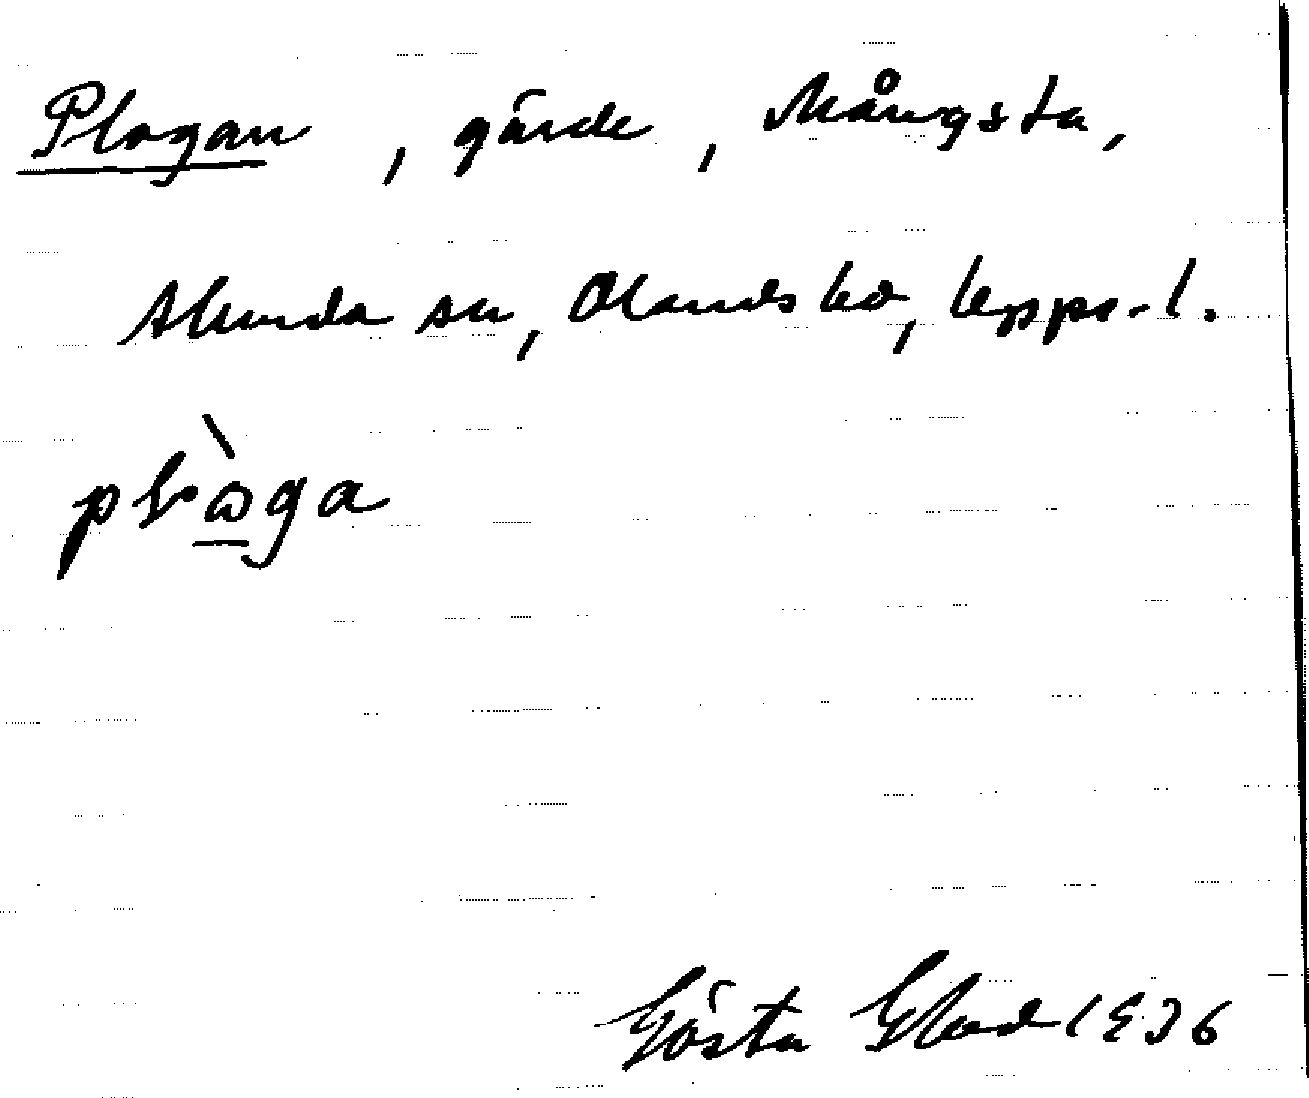 Plogan, gärde, Mångsta,
Alunda sn, Olands hd, Upps. l.
plòga
Gösta Glad 1936